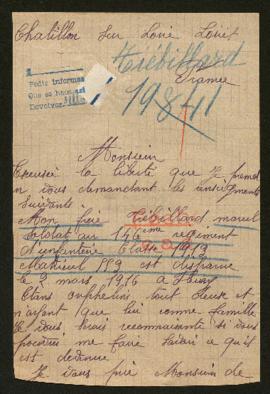 Chatillon Sur Loire Loiret
Thiébillard
France
Pedir informes
Que se han
Devolver
19841
Monsieur
Excuser la liberté que je prend
en vous demandant les renseignements
suivants
Mon frère Thiébillard marcel
soldat au 146ème regiment
d'infanterie Classe 1912
Matricul est disparue
le 3 mars 1916 à
Etans orphelins tout deux et
n'ayant que lui comme famille
Je vous serais reconnaissante si vous
pouviez me faire savoir ce qu'il
est devenue.
Je vous prie Monsieur de